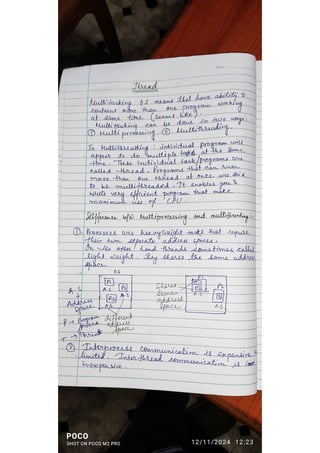 Thread
Multitasking O.S means that have ability to
contains more than one program working
at same time (seems like)
Multitasking can be done in two ways
① Multiprocessing ② Multithreading.
In Multithreading: individual program will
appear to do multiple tasks at the same
time. These individual task/programs are
called thread. Programs that can run
more than one thread at once are said
to be multithreaded. It enables you to
write very efficient program that make
maximum use of CPU.
Difference b/w Multiprocessing and multithreading
① Processes are heavyweight task that require
their own separate address spaces.
On the other hand threads sometimes called
light weight. They shares the same address
space.
O.S
A.S →
Address
Space
P → Program
process
T → Thread
different
address
space
Shares
Same
address
space
② Interprocess communication is expensive &
limited. Inter-thread communication is
inexpensive.
POCO
SHOT ON POCO M2 PRO
12/11/2024 12:23